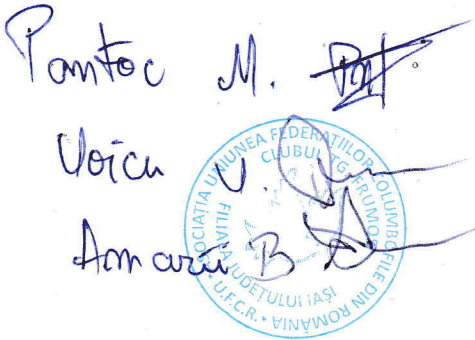 Pantoc M.
Voicu V.
Amarii B
ASOCIAȚIA UNIUNEA FEDERAȚIILOR COLUMBOFILE DIN ROMÂNIA • U.F.C.R. •
CLUBUL TG. FRUMOS
FILIALA JUDEȚULUI IAȘI